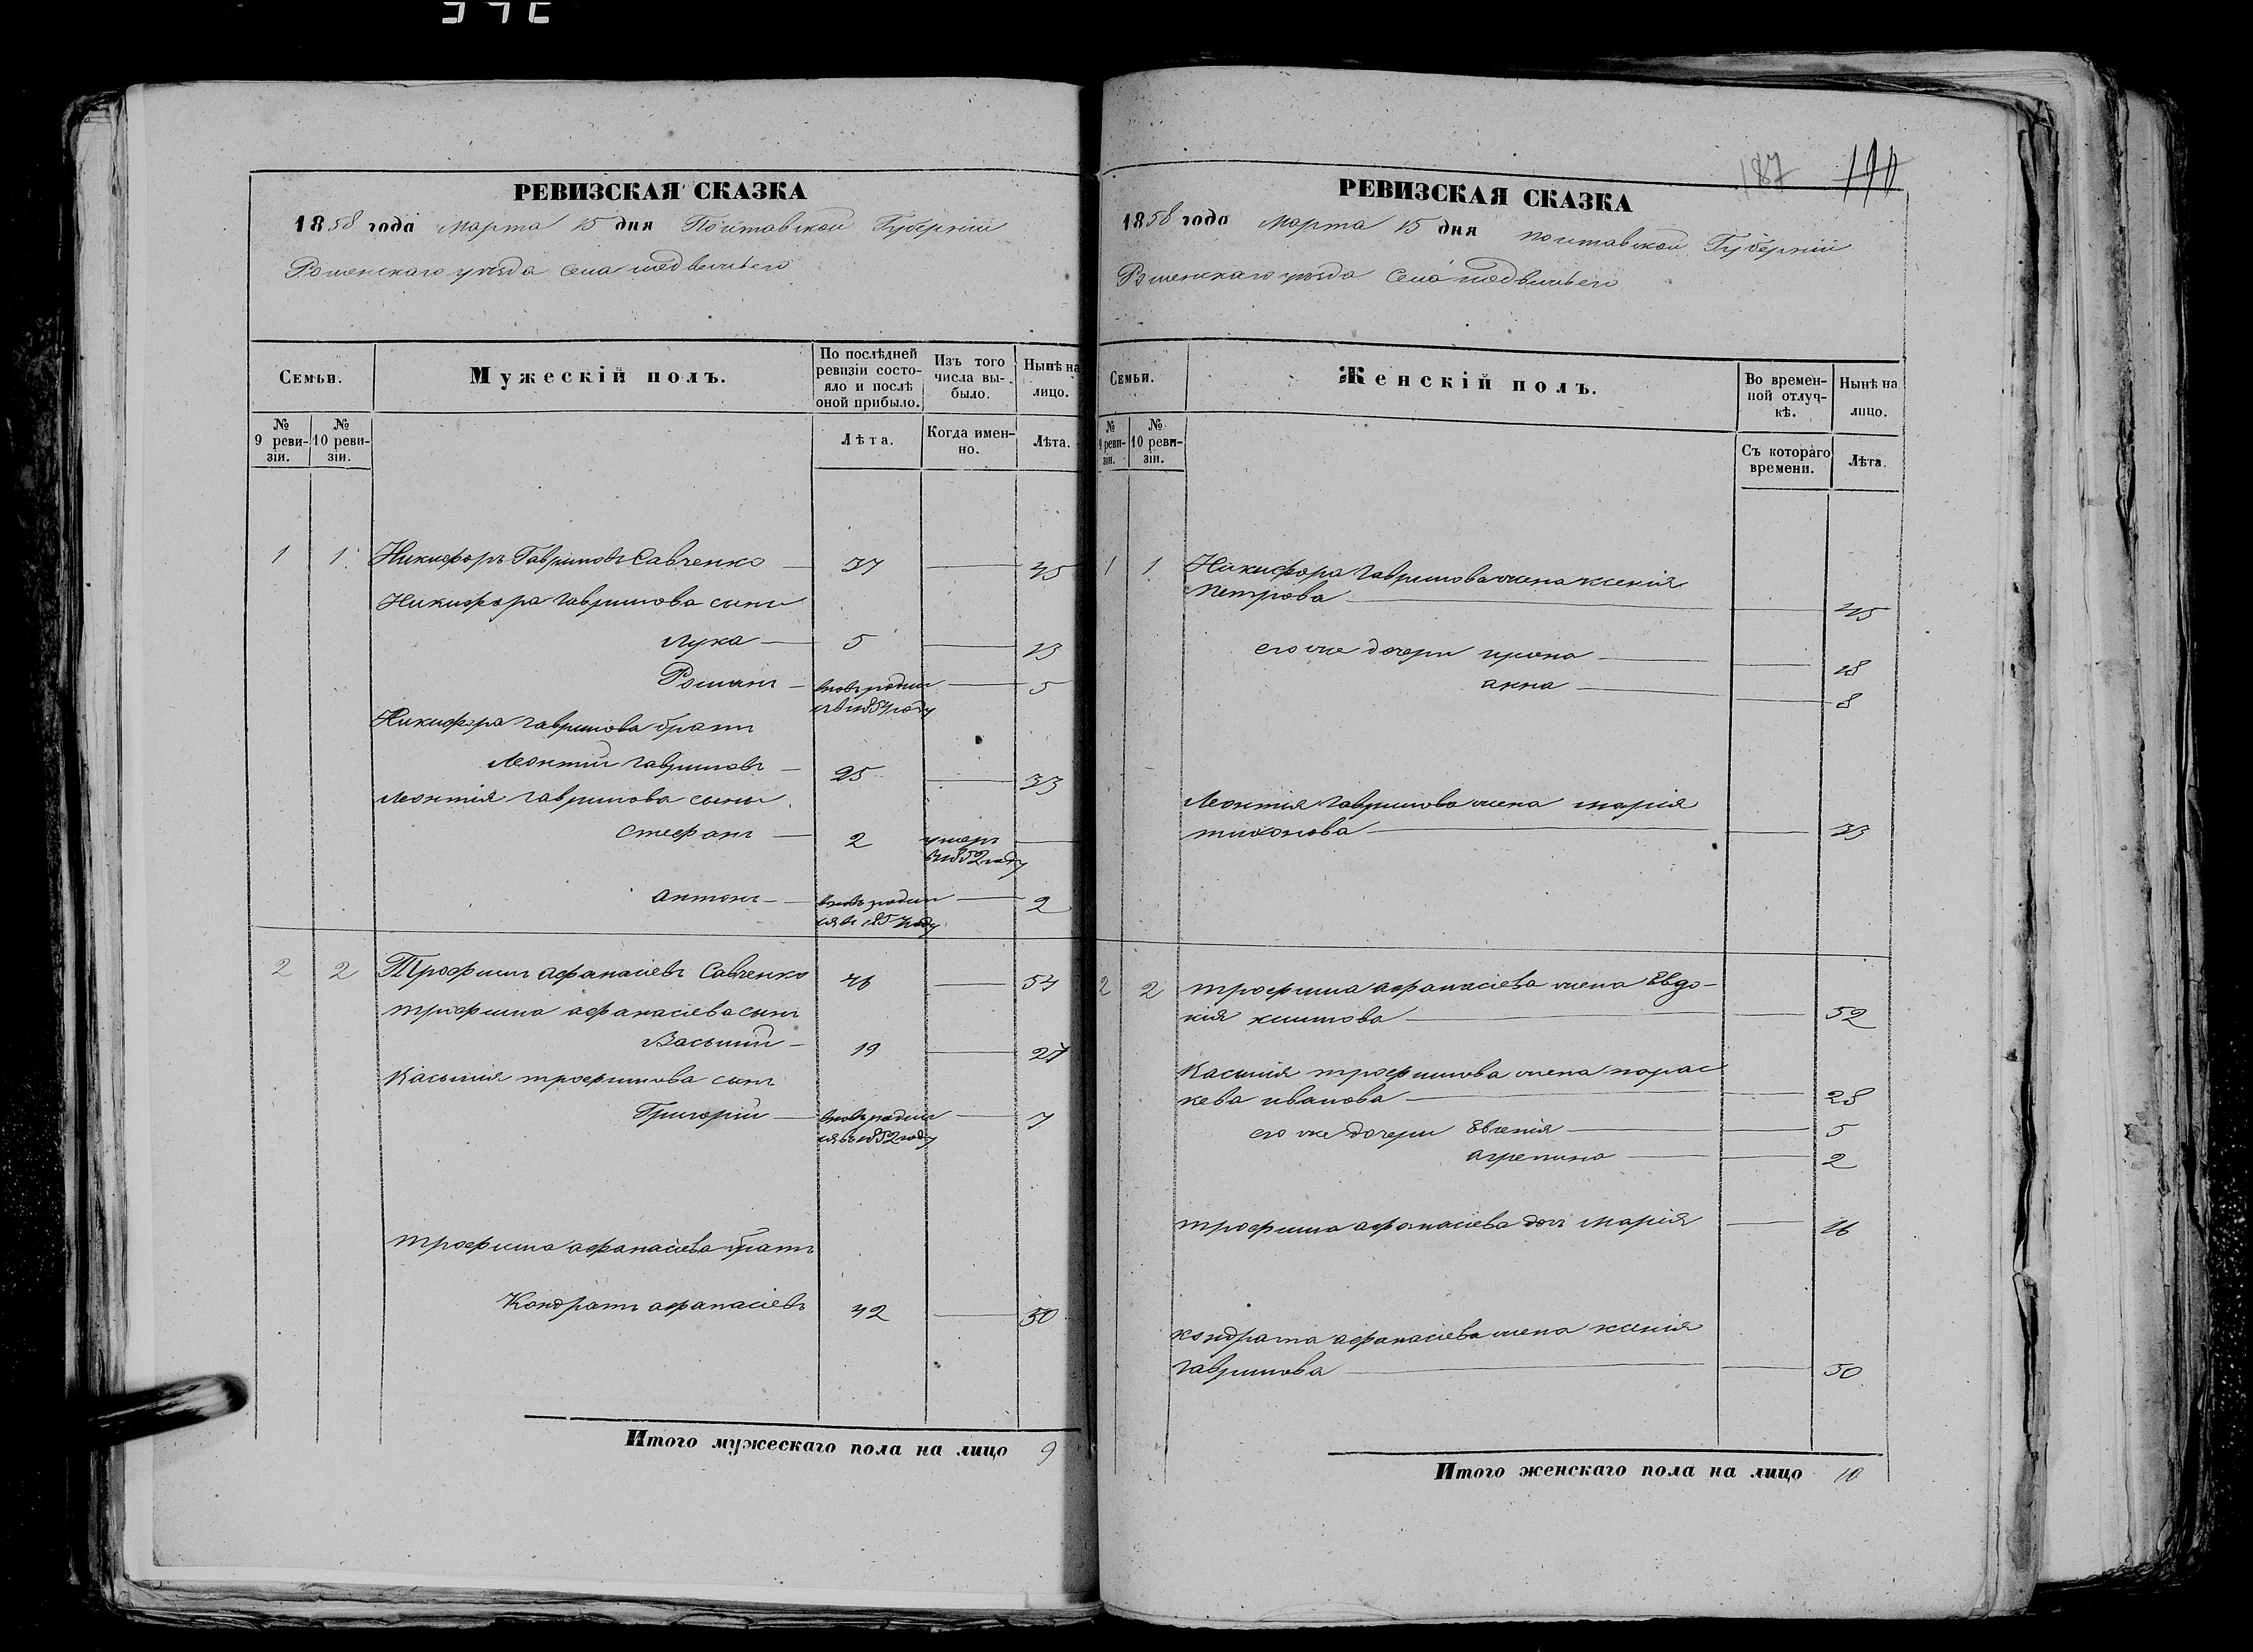 РЕВИЗСКАЯ СКАЗКА
1858 года Марта 15 дня Полтавской Губерніи
Роменскаго уѣзда Села Медвежьего
Семьи.
Мужескій полъ.
По послѣдней ревизіи состояло и послѣ оной прибыло.
Изъ того числа выбыло.
Нынѣ на лицо.
№ 9 ревизіи.
№ 10 ревизіи.
Лѣта.
Когда именно.
Лѣта.
1 1 Никифоръ Гавриловъ Савченко 37 45
Никифора Гаврилова сыны
Лука 5 13
Романъ вновь родился въ 1854 году 5
Никифора Гаврилова братъ
Леонтій Гавриловъ 25 33
Леонтія Гаврилова сыны
Стефанъ 2 умеръ въ 1852 году
Антонъ вновь родился въ 1857 году 2
2 2 Трофимъ Афанасіевъ Савченко 46 54
Трофима Афанасіева сынъ
Василій 19 27
Василія Трофимова сынъ
Григорій вновь родился въ 1852 году 7
Трофима Афанасіева братъ
Кондратъ Афанасіевъ 42 50
Итого мужескаго пола на лицо 9
187 190
РЕВИЗСКАЯ СКАЗКА
1858 года Марта 15 дня Полтавской Губерніи
Роменскаго уѣзда Села Медвежьего
Семьи.
Женскій полъ.
Во временной отлучкѣ.
Нынѣ на лицо.
№ 9 ревизіи.
№ 10 ревизіи.
Съ котораго времени.
Лѣта.
1 1 Никифора Гаврилова жена Ксенія
Петрова 45
его же дочери Ирина 18
Анна 8
Леонтія Гаврилова жена Марія
Тихонова 33
2 2 Трофима Афанасіева жена Евдо-
кія Климова 52
Василія Трофимова жена Парас
кева Иванова 28
его же дочери Евгенія 5
Агрепина 2
Трофима Афанасіева доч Марія 16
Кондрата Афанасіева жена Ксенія
Гаврилова 50
Итого женскаго пола на лицо 10